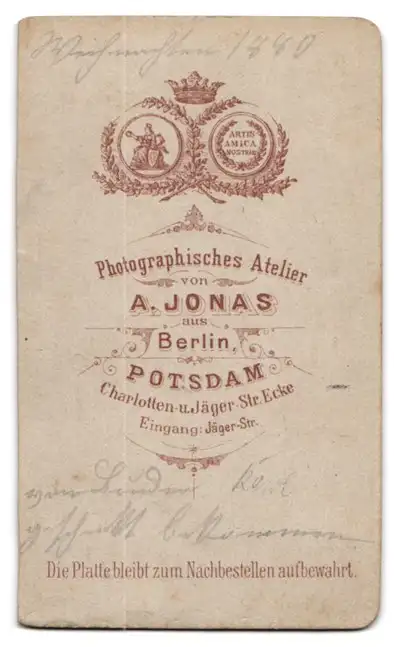 Weihnachten 1880
ARTIS
AMICA
NOSTRIS
Photographisches Atelier
von
A. JONAS
aus
Berlin,
POTSDAM
Charlotten-u.Jäger-Str. Ecke
Eingang: Jäger-Str.
von Bruder
geschickt bekommen
Die Platte bleibt zum Nachbestellen aufbewahrt.